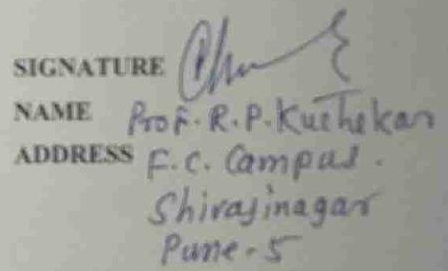 SIGNATURE
NAME Prof. R.P. Kuthekar
ADDRESS F.C. Campus.
Shivajinagar
Pune-5